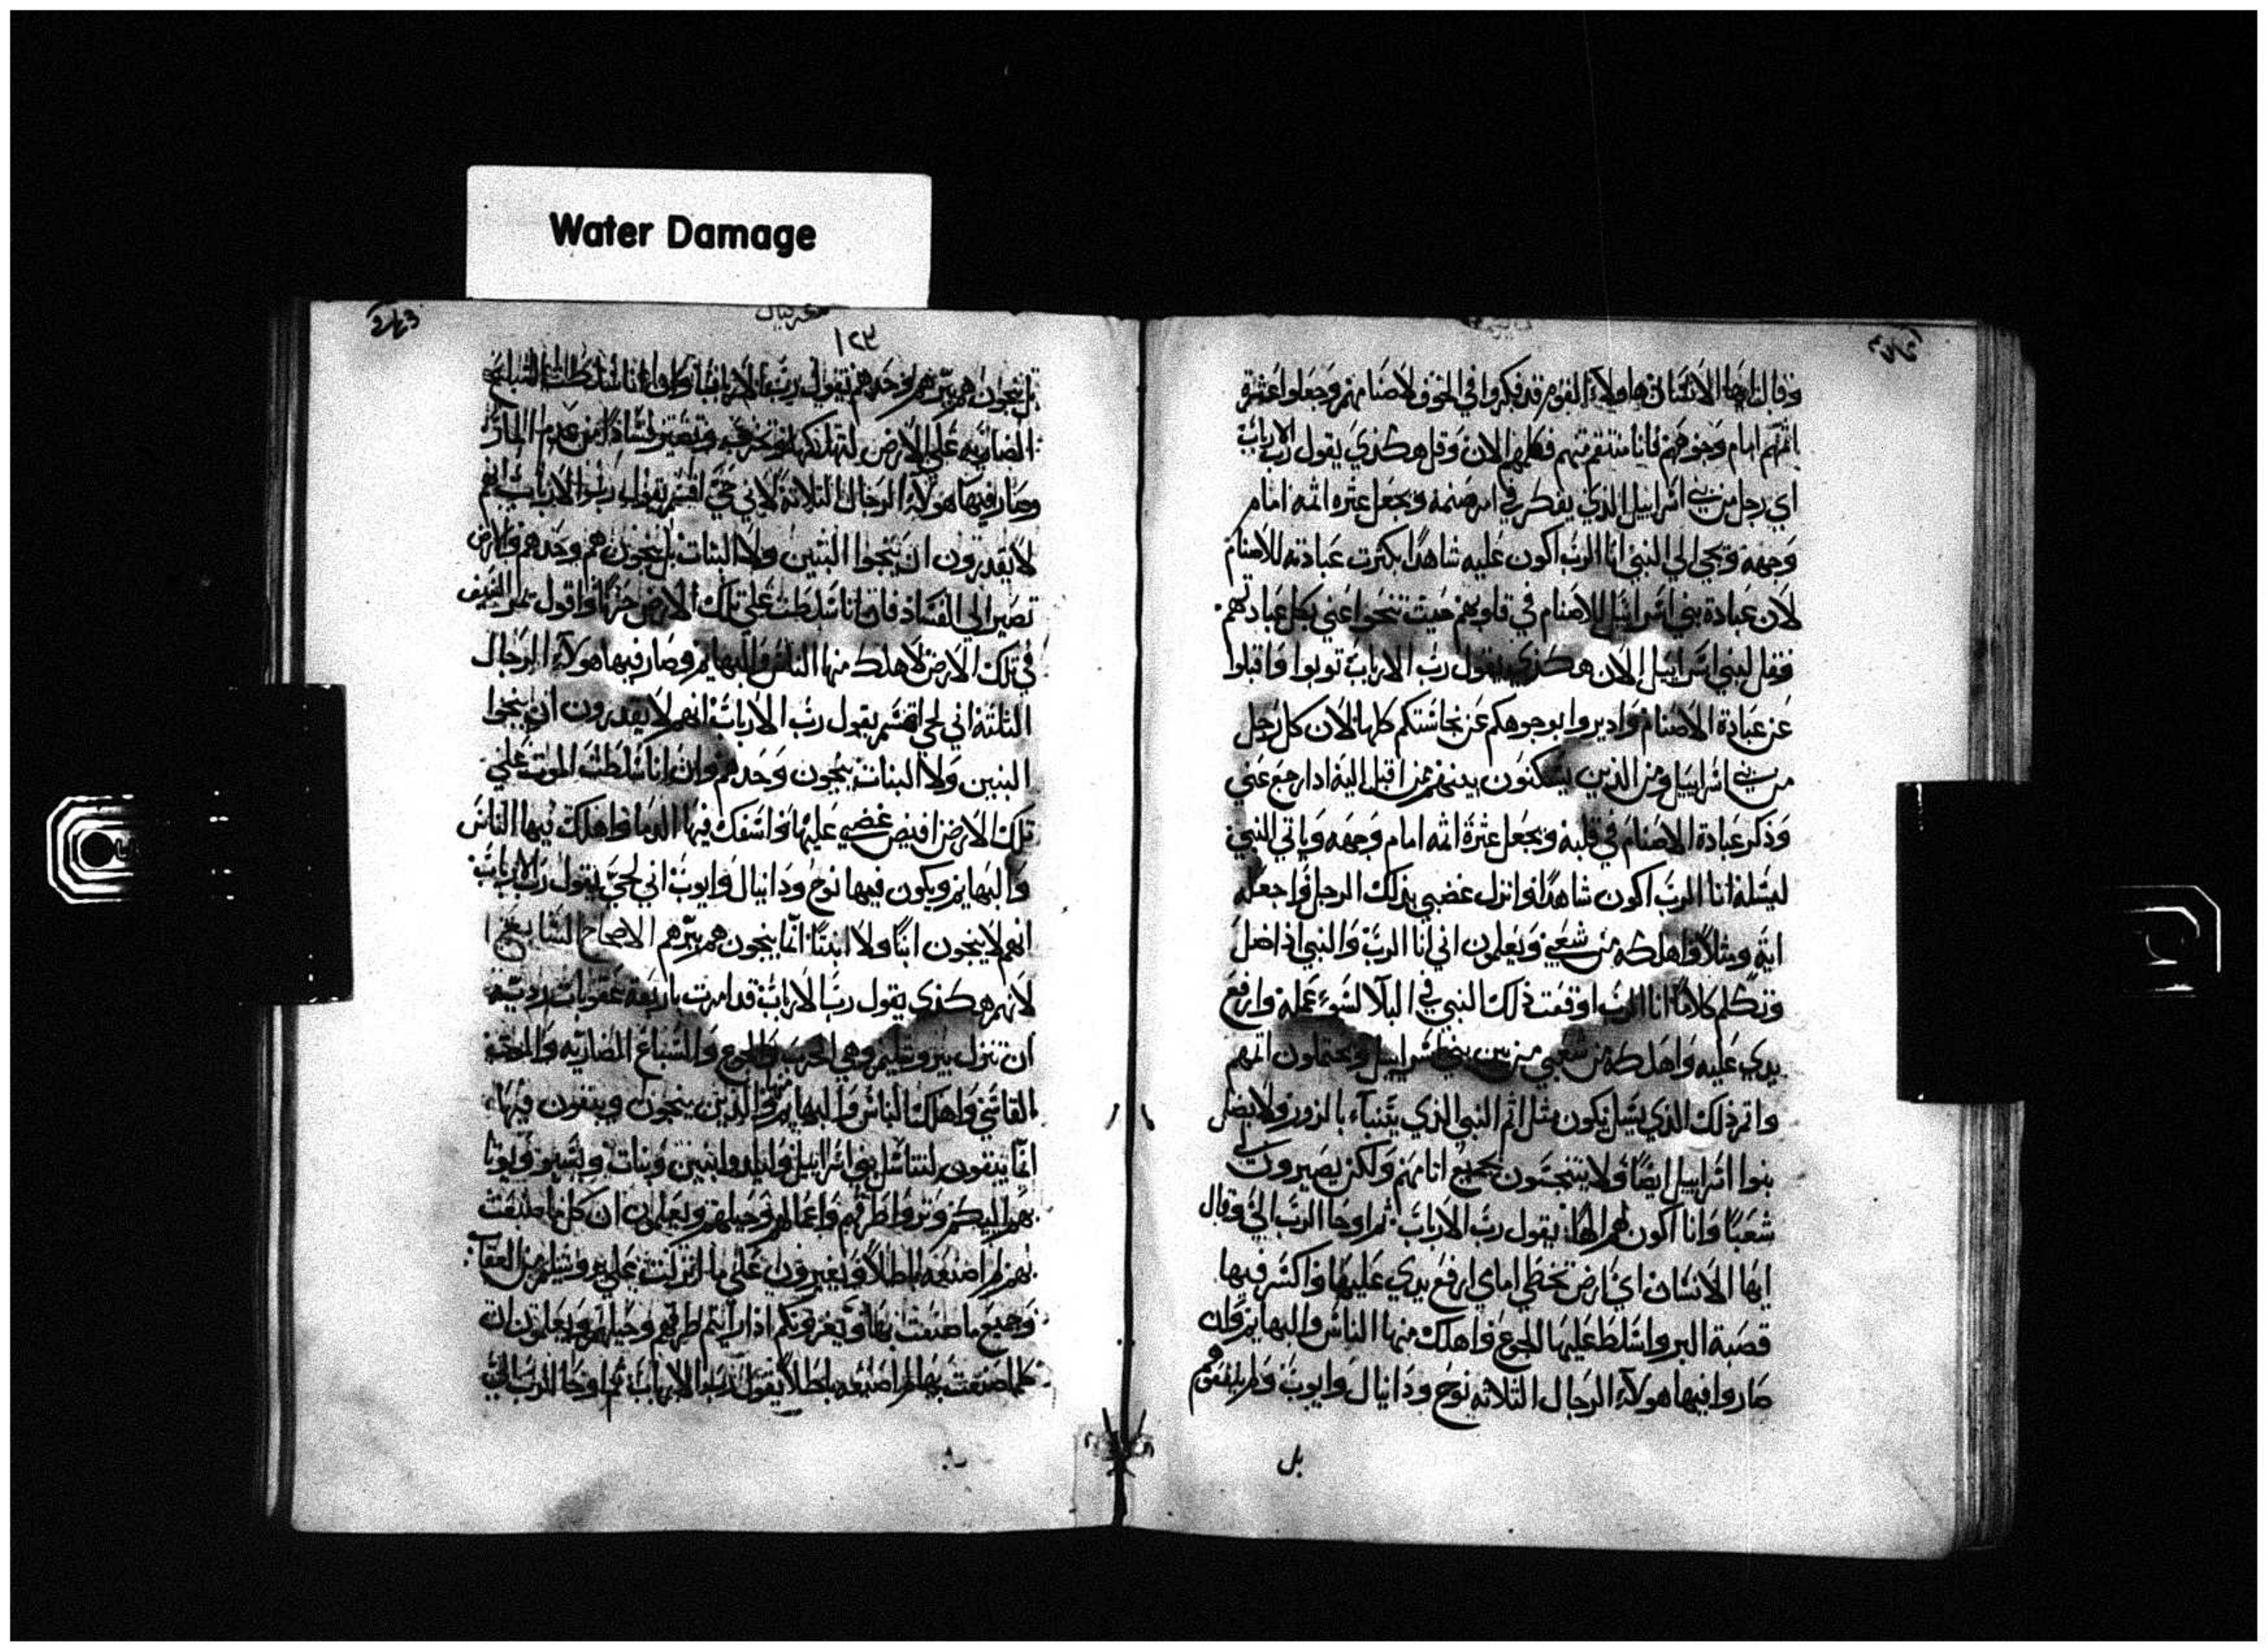 Water Damage
وقال ايها الانسان هاولاء القوم قد فكروا في الخوف لاصنامهم وجعلوا عثرة
اثمهم امام وجوههم فانا منتقم منهم فكلمهم الان وقل هكذي يقول رب الارباب
اي رجل من بني اسراييل الذي يفكر في امر صنمه ويجعل عثرة اثمه امام
وجهه ويجي الي النبي انا الرب اكون عليه شاهدا بكثرت عبادته للاصنام
لان عبادة بني اسراييل للاصنام في قلوبهم حيث تنحوا عني بكل عبادتهم
فقل لبني اسراييل الان هكذي يقول رب الارباب توبوا واقبلوا
عن عبادة الاصنام واديروا بوجوهكم عن نجاستكم كلها لان كل رجل
من بني اسراييل ومن الذين يسكنون بينهم من اقبل اليه ادا رجع عني
وذكر عبادة الاصنام في قلبه ويجعل عثرة اثمه امام وجهه وياتي النبي
ليسله انا الرب اكون شاهدا وانزل غضبي بذلك الرجل واجعله
اية ومثلا واهلكه من شعبي ويعلمون اني انا الرب والنبي اذا ضل
وتكلم كلاما انا الرب اوقعت ذلك النبي في البلا لسوء عمله وارفع
يدي عليه واهلكه من شعبي من بين بني اسراييل ويحتملون اثمهم
واثم ذلك الذي يسل يكون مثل اثم النبي الذي يتنباء بالزور ولا يضل
بنوا اسراييل ايضا ولا يتنجسون بجميع اثامهم ولكن يصيرون لي
شعبا وانا اكون لهم الها يقول رب الارباب ثم اوحا الرب الي وقال
ايها الانسان اي ارض تخطي امامي ارفع يدي عليها واكسر فيها
قصبة البر واسلط عليها الجوع واهلك منها الناس والبهايم وان
صاروا فيها هولاء الرجال الثلاثه نوح ودانيال وايوب ولم ينفقهم
بل
حزقيال
١٢٣
بل ينجون هم ببرهم وحدهم يقول رب الارباب ولو انا سلطت السباع
الضاريه علي الارض لتهلكها وتخرب وتصير فسادا من عدم المار
وصار فيها هولاء الرجال الثلاثة لاني حي اقسم يقول رب الارباب انهم
لا يقدرون ان ينجوا البنين ولا البنات بل ينجون هم وحدهم والارض
تصير الي الفساد فان انا سلطت علي تلك الارض حربا واقول يمر السيف
في تلك الارض لاهلك منها الناس والبهايم وصار فيها هولاء الرجال
الثلثة اني لحي اقسم يقول رب الارباب انهم لا يقدرون ان ينجوا
البنين ولا البنات ينجون وحدهم وان انا سلطت الموت علي
تلك الارض افيض غضبي عليها واسفك فيها الدما واهلك فيها الناس
والبهايم ويكون فيها نوح ودانيال وايوب اني لحي يقول رب الارباب
انهم لا ينجون ابنا ولا ابنتا انما ينجون هم ببرهم الاصحاح السابع
لانهم هكذي يقول رب الارباب قد امرت باربعة عقوبات رديه
ان تنزل بيروشليم وهي الحرب والجوع والسباع الضاريه والموت
القاسي واهلكت الناس والبهايم منها والذين ينجون ويبقون فيها
انما يبقون لتناسل بنوا اسراييل وليلدوا بنين وبنات
اليكم وتروا طرقهم واعمالهم وحيلهم ويعلمون ان كل ما صنعت
بهم لم اصنعه باطلا علي ما انزلت علي يروشليم من العقاب
وجميع ما صنعت بها ويعزونكم اذا رايتم طرقهم وحيلهم ويعلمون ان
كلما صنعت بها لم اصنعه باطلا يقول رب الارباب ثم اوحا الرب الي